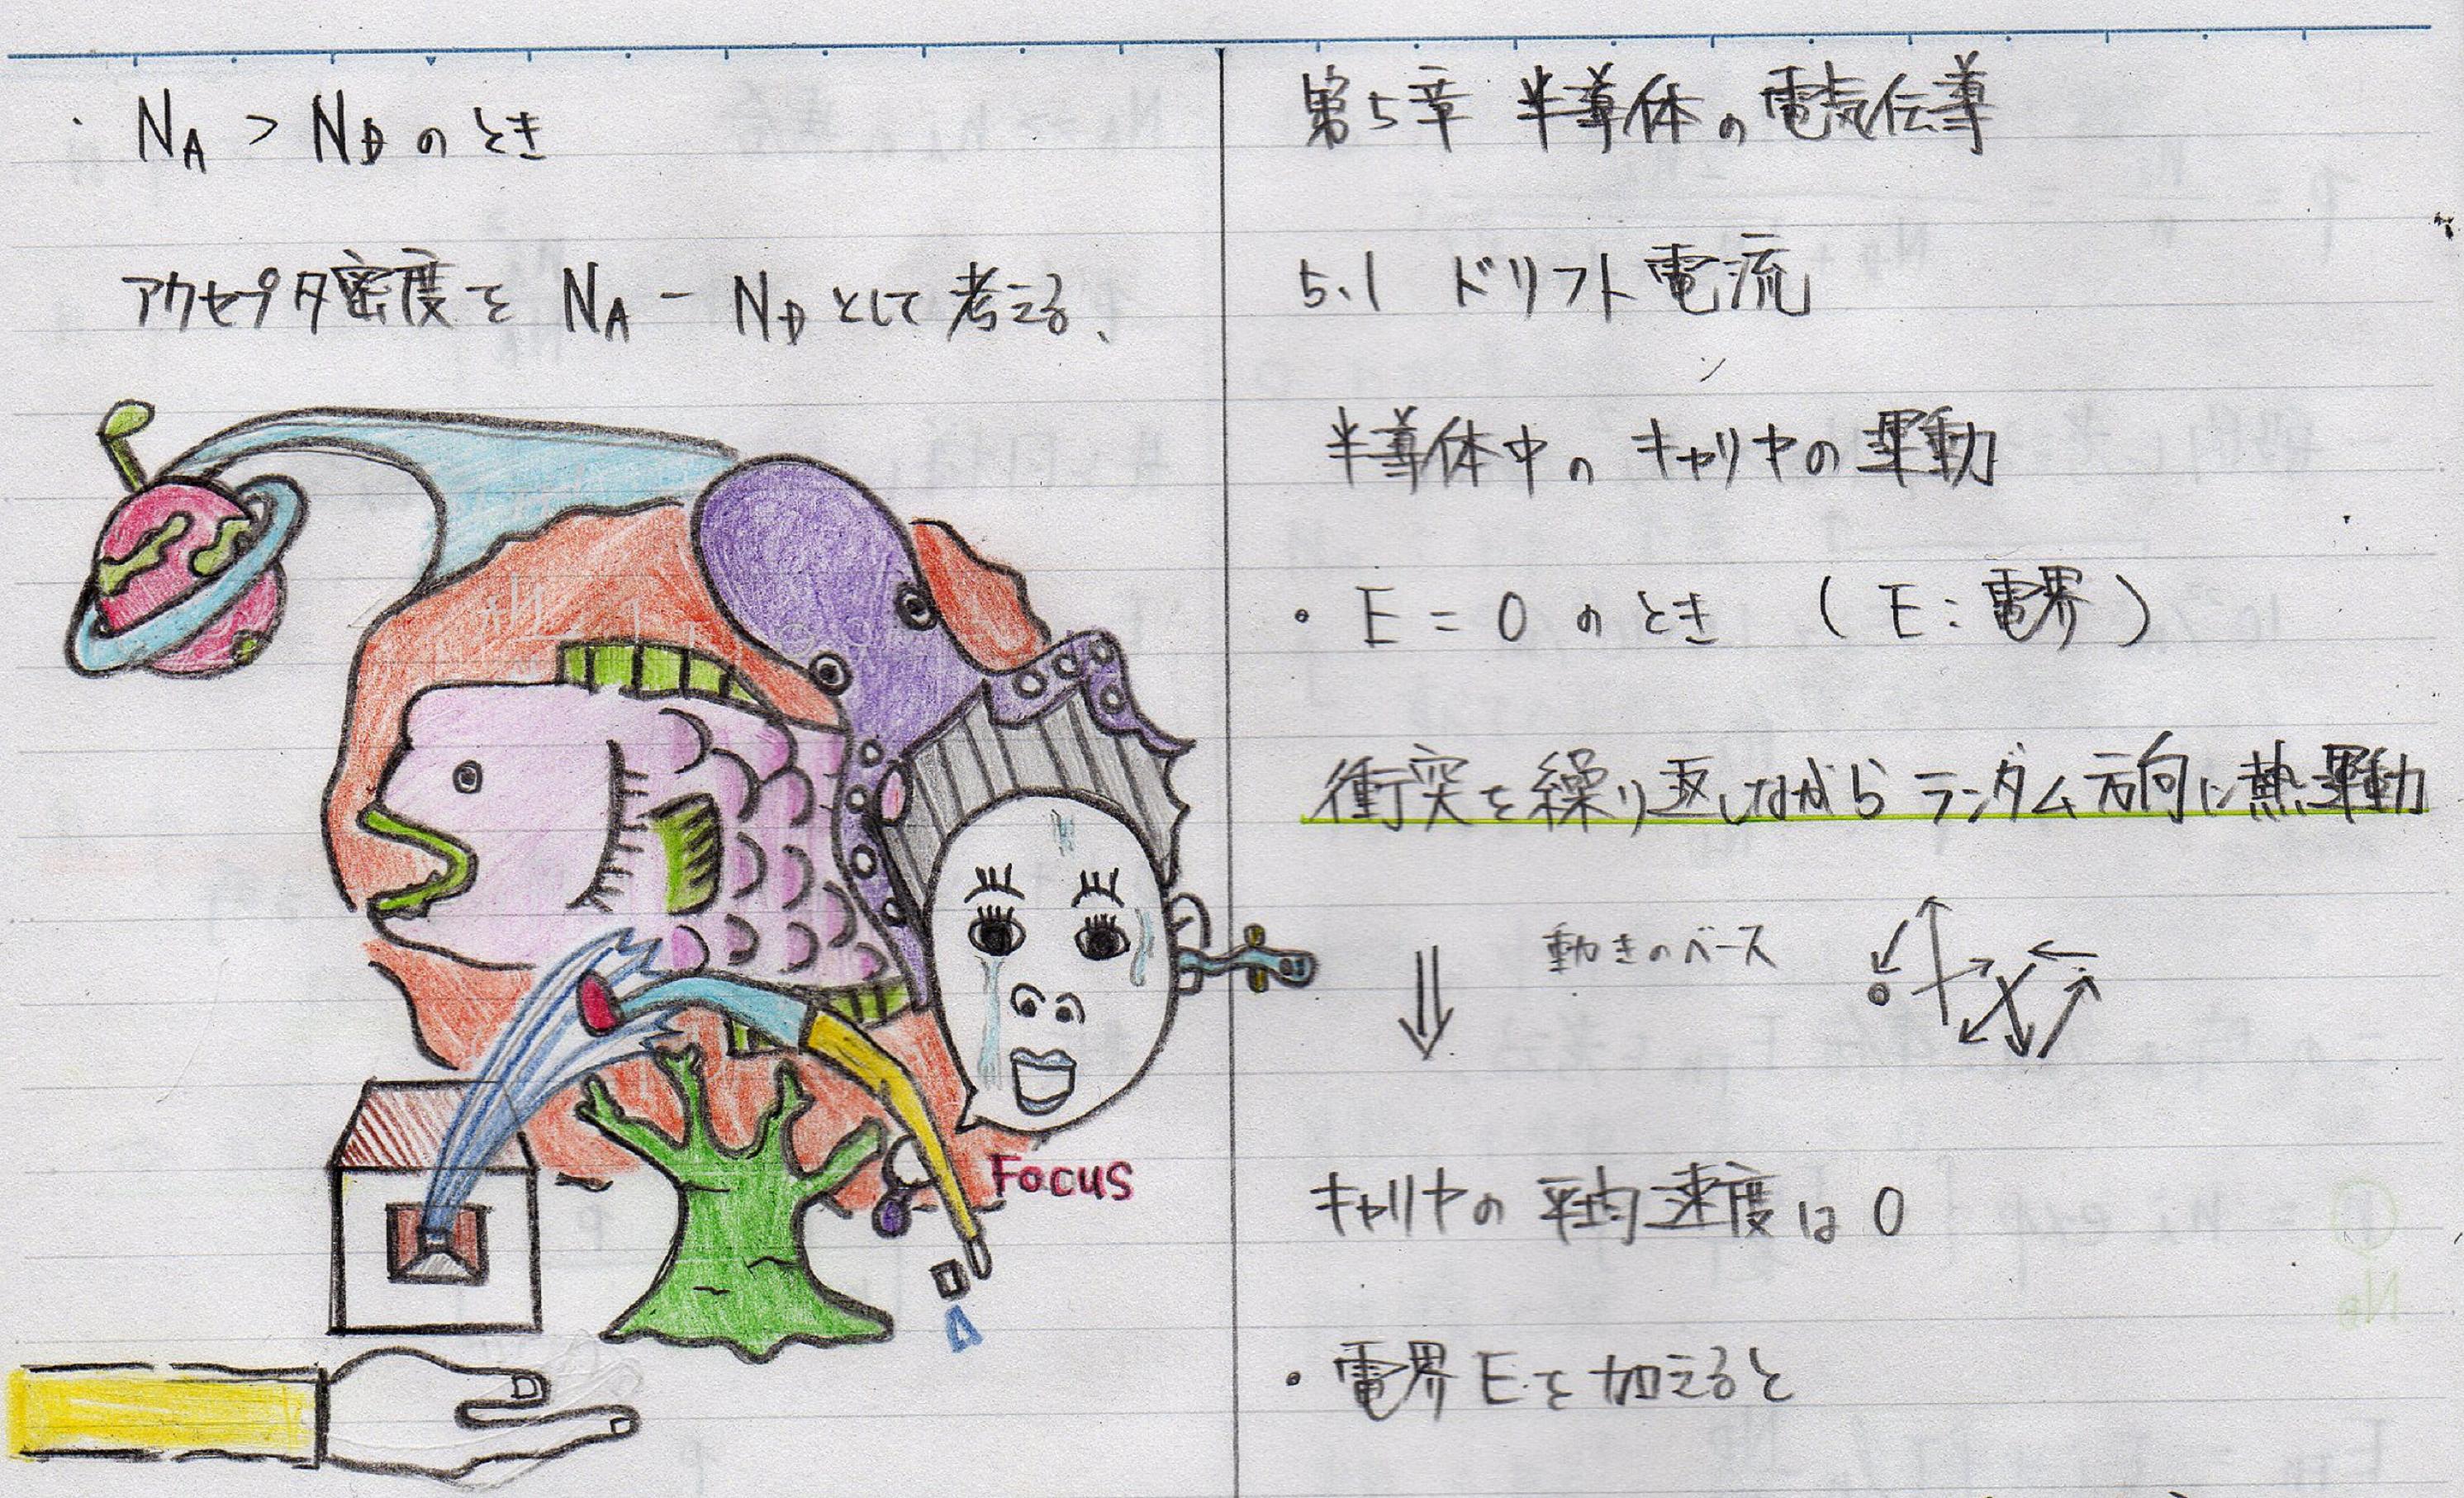 ・ NA > NDのとき
アクセプタ密度を NA - NDとして考える、
Focus
第5章 半導体の電気伝導
5.1 ドリフト電流
半導体中のキャリヤの運動
・ E = 0 のとき (E:電界)
衝突を繰り返しながらランダム方向に熱運動
⇓ 動きのベース
キャリヤの平均速度は0
・電界Eを加えると